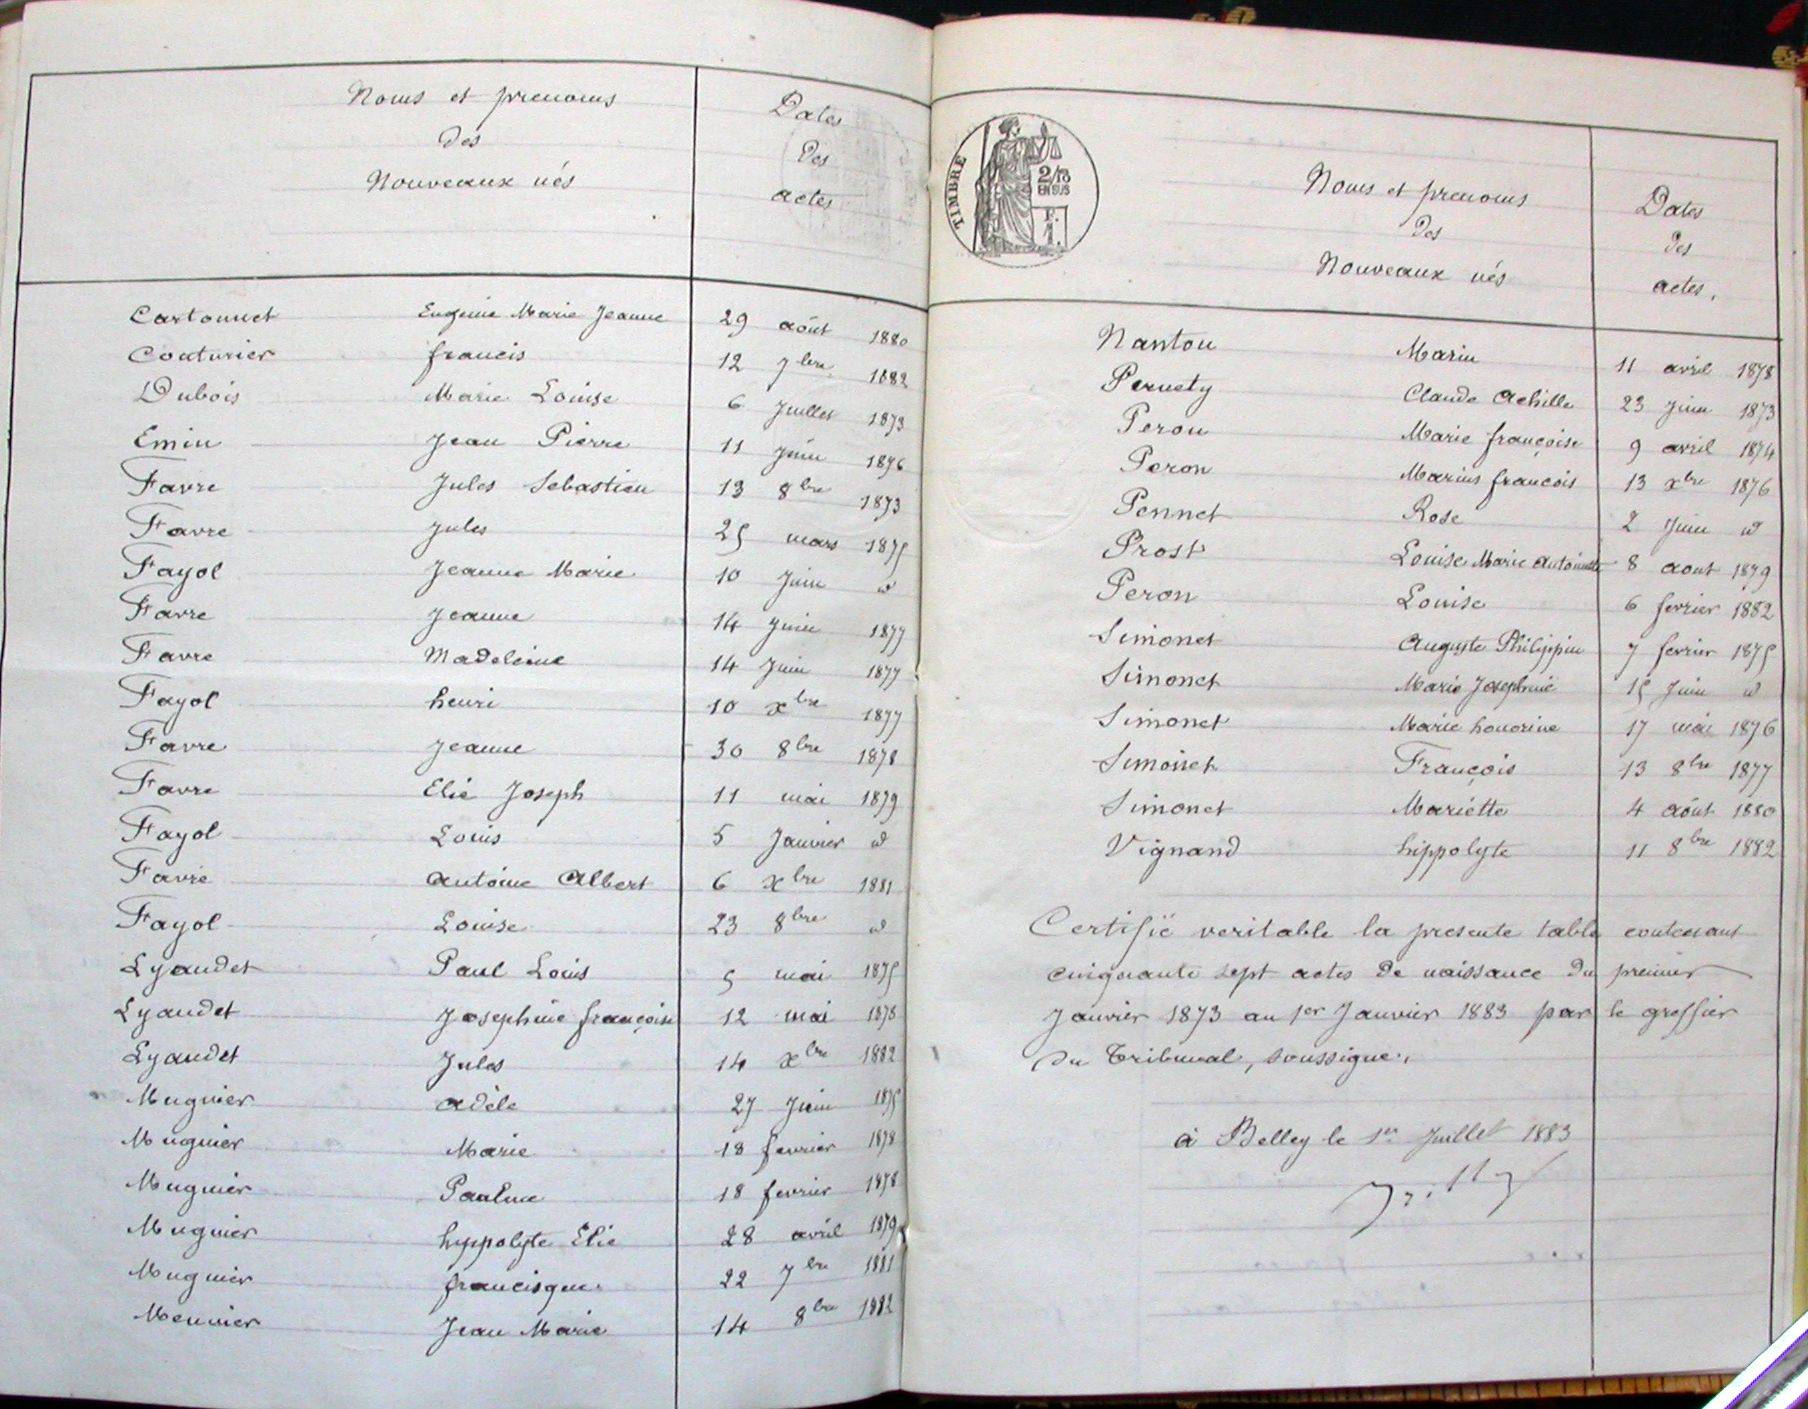 Noms et prenoms
des
Nouveaux nés
Dates
des
actes
Cartonnet Eugénie Marie Jeanne 29 août 1880
Couturier francis 12 7bre 1882
Dubois Marie Louise 6 Juillet 1873
Emin Jean Pierre 11 Juin 1876
Favre Jules Sebastien 13 8bre 1873
Favre Jules 25 mars 1875
Fayol Jeanne Marie 10 Juin d
Favre Jeanne 14 Juin 1877
Favre Madeleine 14 Juin 1877
Fayol henri 10 xbre 1877
Favre Jeanne 30 8bre 1878
Favre Elie Joseph 11 mai 1879
Fayol Louis 5 Janvier d
Favre Antoine Albert 6 xbre 1881
Fayol Louise 23 8bre d
Lyaudet Paul Louis 5 mai 1875
Lyaudet Josephine françoise 12 mai 1878
Lyaudet Jules 14 xbre 1882
Mugnier adèle 27 Juin 1875
Mugnier Marie 18 fevrier 1878
Mugnier Pauline 18 fevrier 1878
Mugnier hyppolyte Elie 28 avril 1879
Mugnier francisque 22 7bre 1881
Meunier Jean Marie 14 8bre 1882
TIMBRE
2/10
EN SUS
F.
1.
Noms et prenoms
des
Nouveaux nés
Dates
des
actes.
Nanton Marin 11 avril 1878
Pernety Claude Achille 23 Juin 1873
Peron Marie françoise 9 avril 1874
Peron Marius françois 13 xbre 1876
Pennet Rose 2 Juin d
Prost Louise Marie Antoinette 8 aout 1879
Peron Louise 6 fevrier 1882
Simonet Auguste Philippin 7 fevrier 1875
Simonet Marie Josephine 15 Juin d
Simonet Marie honorine 17 mai 1876
Simonet François 13 8bre 1877
Simonet Mariette 4 août 1880
Vignand hippolyte 11 8bre 1882
Certifié veritable la presente table contenant
cinquante sept actes de naissance du premier
Janvier 1873 au 1er Janvier 1883 par le greffier
du Tribunal, soussigné.
à Belley le 1er Juillet 1883